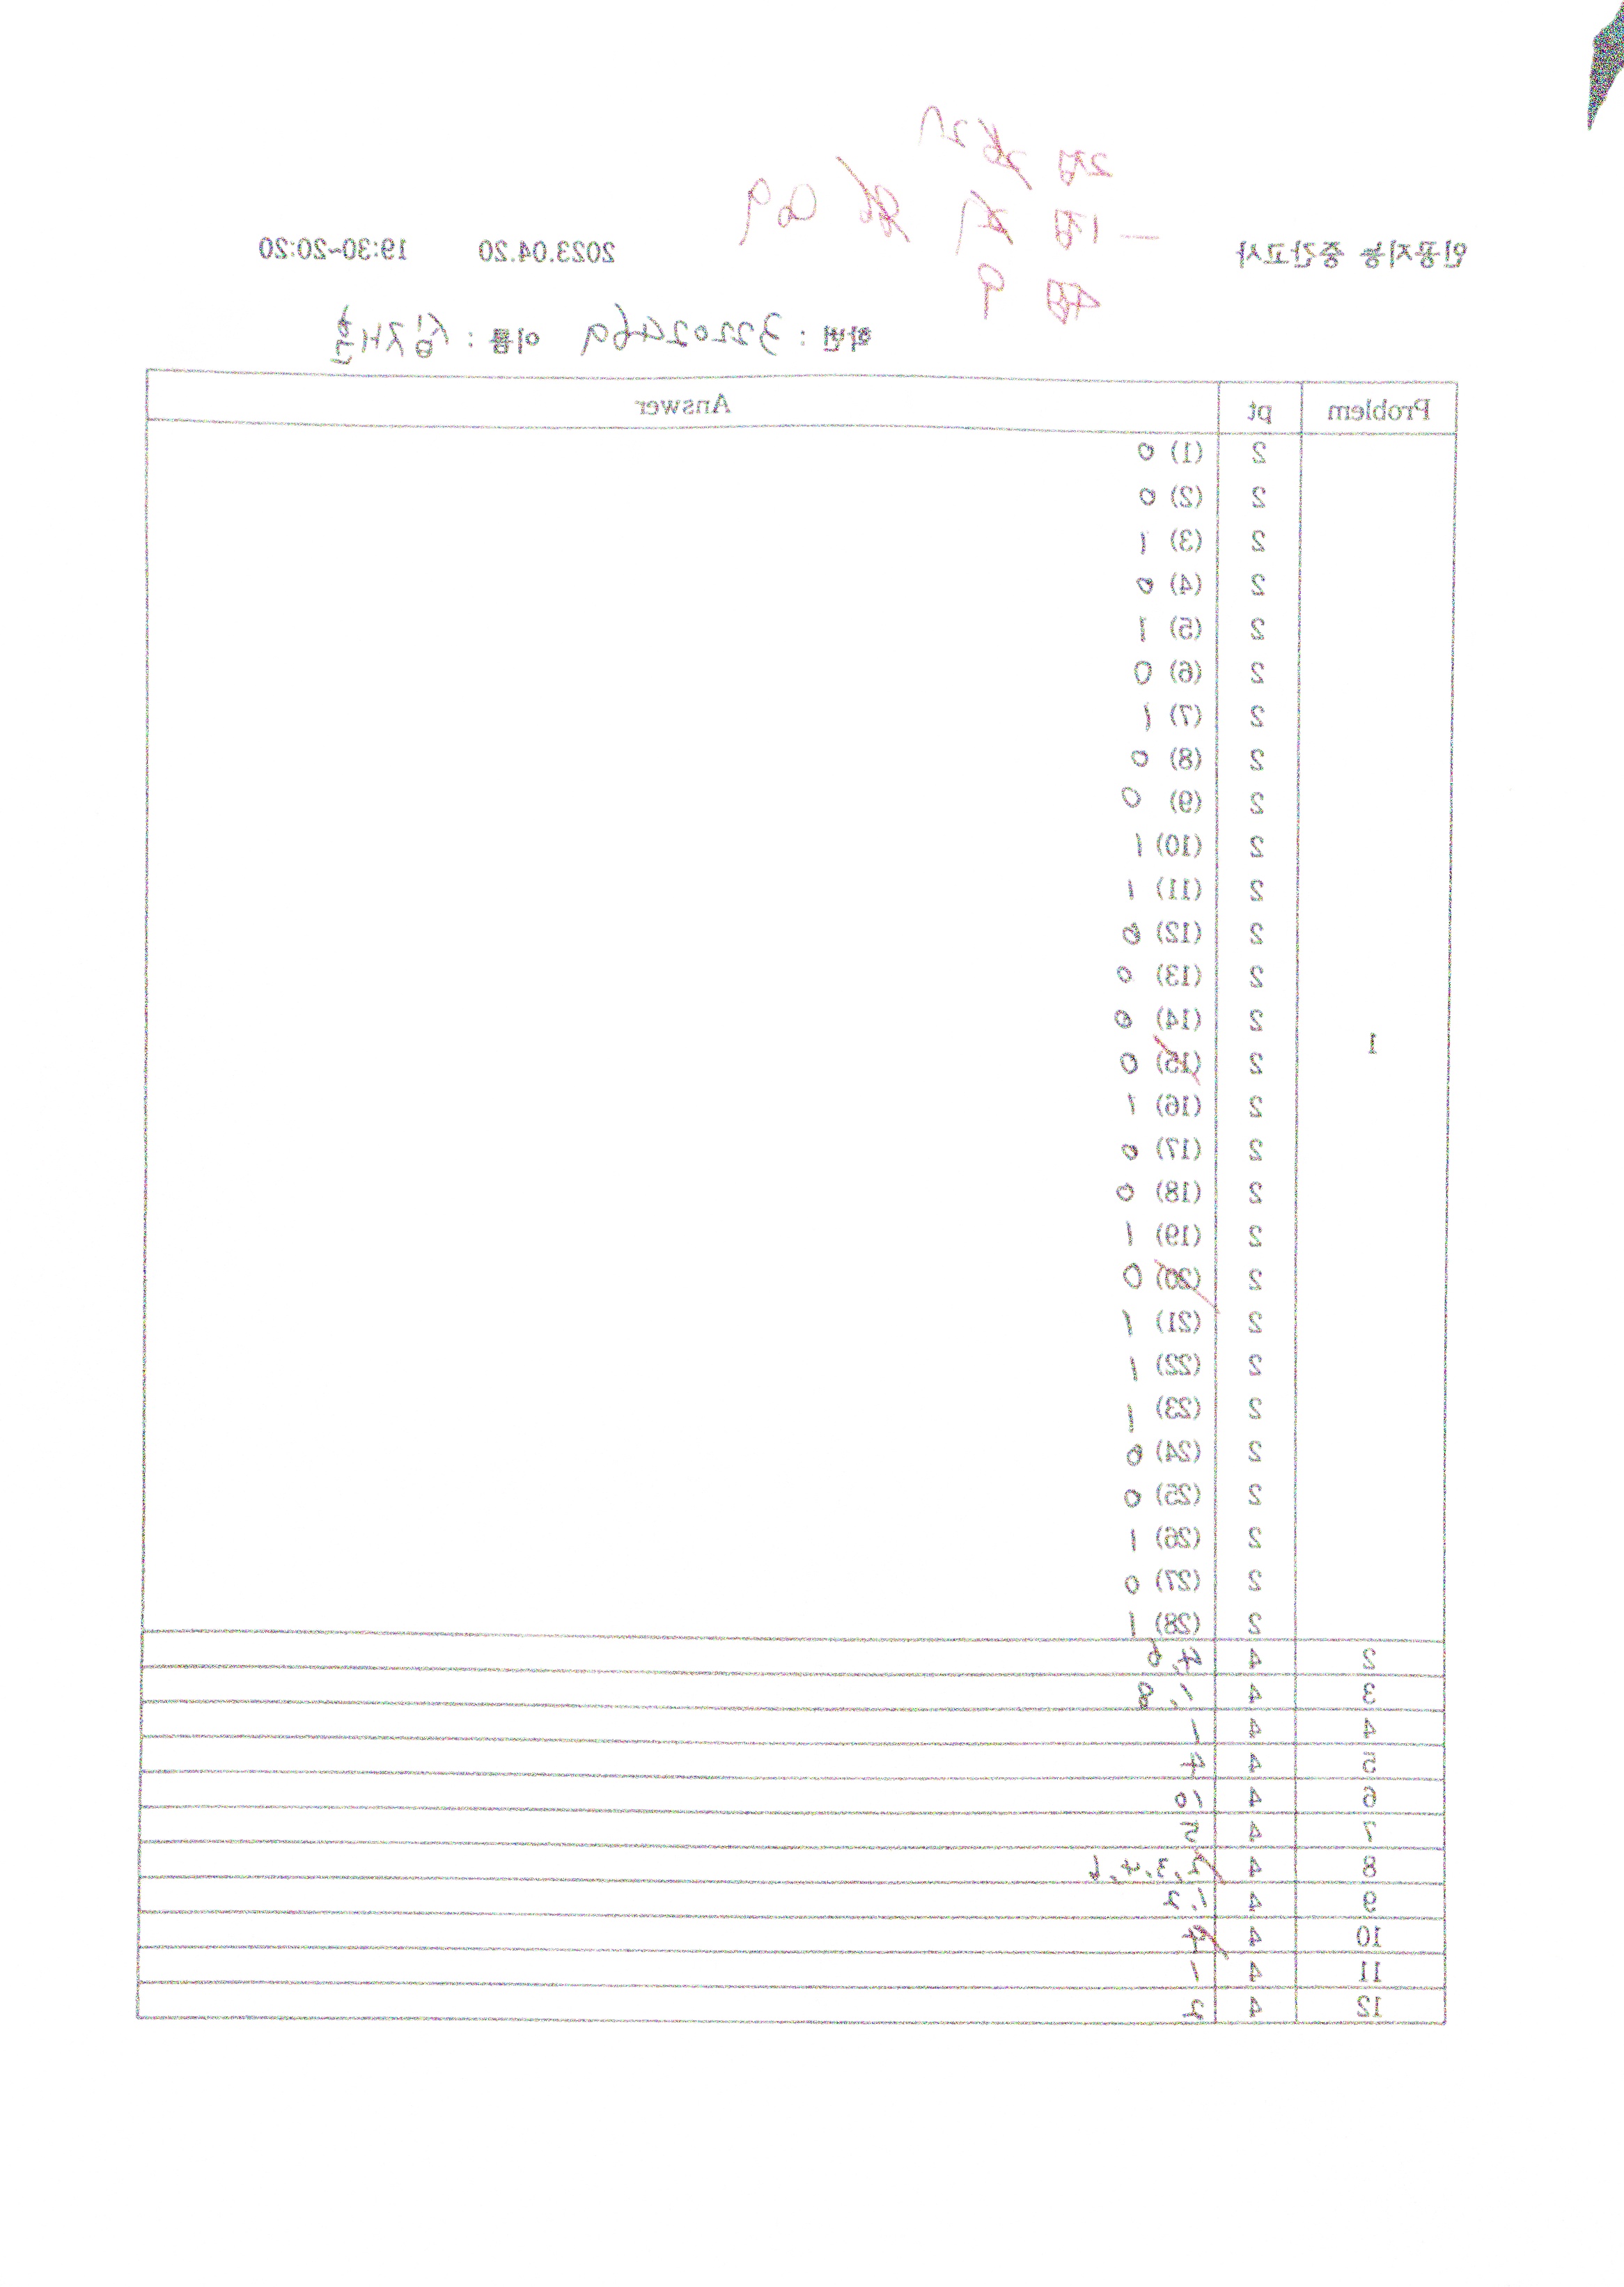 인공지능 중간고사 2023.04.20 19:30~20:20
학번 : 32202469 이름 :
Problem pt Answer
1
2 (1) 0
2 (2) 0
2 (3) 1
2 (4) 0
2 (5) 1
2 (6) 0
2 (7) 1
2 (8) 0
2 (9) 0
2 (10) 1
2 (11) 1
2 (12) 0
2 (13) 0
2 (14) 0
2 (15) 0
2 (16) 1
2 (17) 0
2 (18) 0
2 (19) 1
2 (20) 0
2 (21) 1
2 (22) 1
2 (23) 1
2 (24) 0
2 (25) 0
2 (26) 1
2 (27) 0
2 (28) 1
2 4 4, 6
3 4 1, 8
4 4 1
5 4 4
6 4 10
7 4 5
8 4 2, 3, 4, 6
9 4 1, 2
10 4
11 4 1
12 4 2